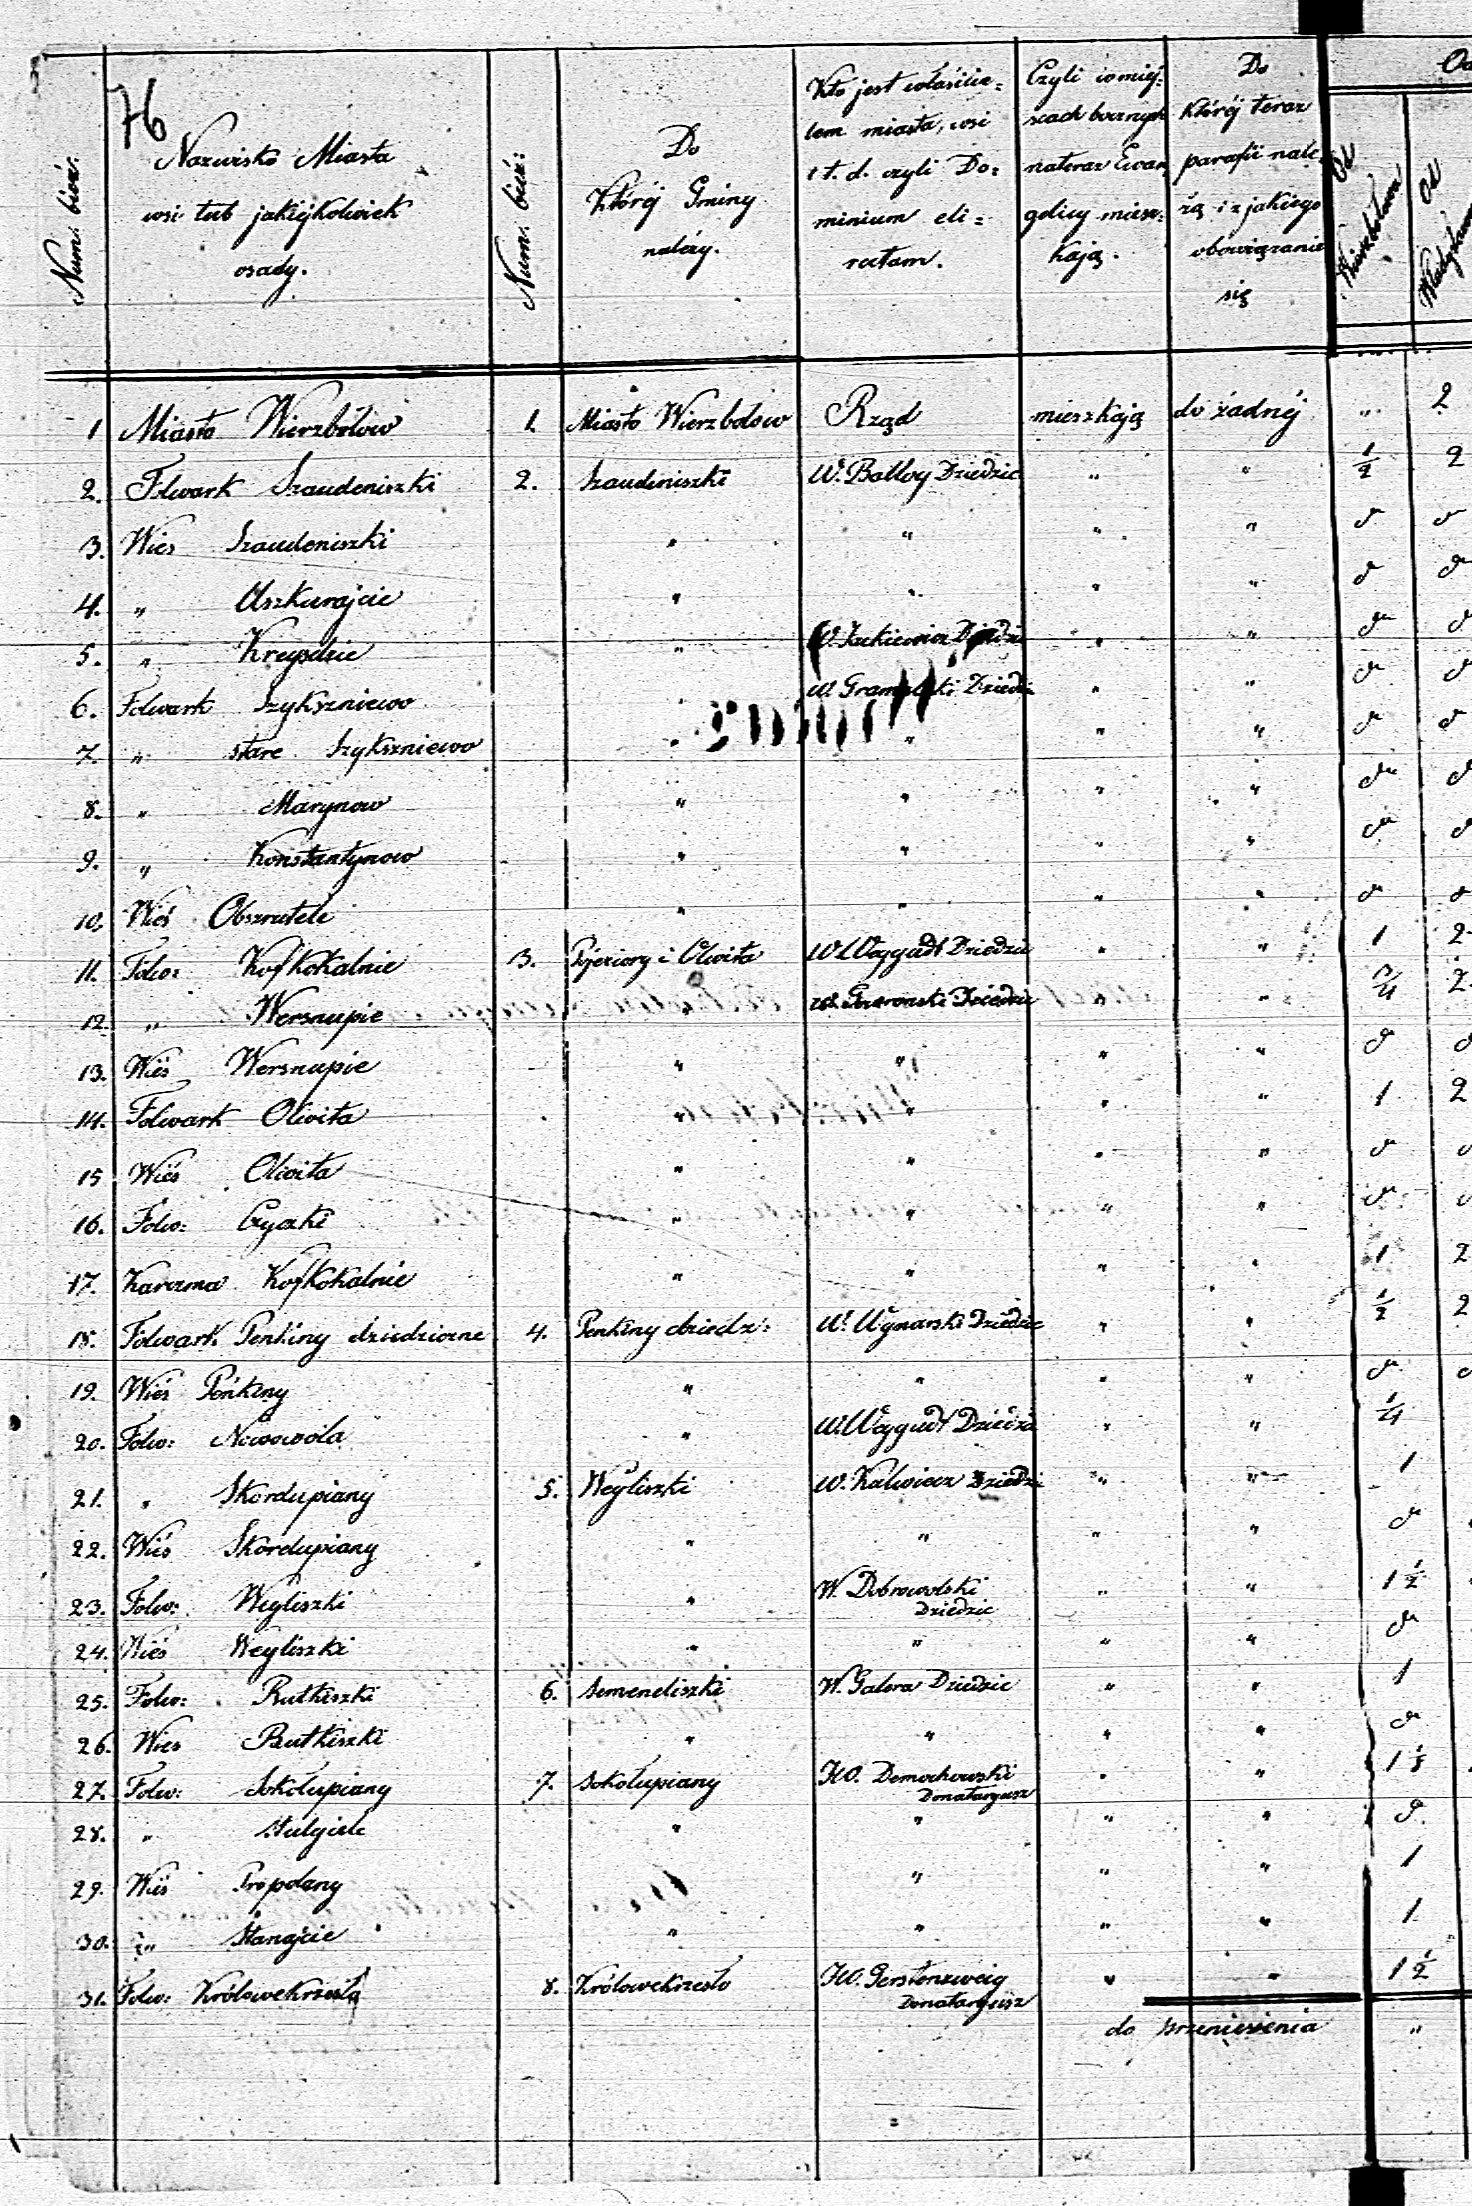 76
Num: bież:
Nazwisko Miasta
wsi lub jakiejkolwiek
osady.
Num: bież:
Do
Której Gminy
należy.
Kto jest właścicie=
lem miasta, wsi
i t. d. czyli Do=
minium eli=
ratam.
Czyli w miej=
scach
nateraz Ewan
golicy miesz=
kają.
Do
której teraz
parafii nale
żą i z jakiego
obowiązania
się
Od
Wierzbołowa
Od
1 Miasto Wierzbołow 1. Miasto Wierzbołow Rząd mieszkają do żadnéj " 2
2. Folwark Szaudeniszki 2. Szaudiniszki W. Balloy Dziedzic " " 1/2 2
3. Wies Szaudeniszki " " " "
4. " Uszkurajcie " " " "
5. " Kreyszie " Dziedzic " "
6. Folwark Szykszniewo " W. Dziedzic " "
7. " stare Szykszniewo " " " "
8. " Marynow " " " "
9. " Konstantynow " " " "
10. Wieś Obszrutele " " " "
11. Folw: Kofkokalnie 3. Pojeziory i Olwita W. Weygadt Dziedzic " " 1 2
12. " Wersnupie " W. Dziedzic " " 3/4 2.
13. Wieś Wersnupie " " " "
14. Folwark Olwita " " " " 1 2
15 Wieś Olwita " " " "
16. Folw: Czyczki " " " "
17. Karczma Kofkokalnie " " " " 1 2
18. Folwark Penkiny dziedziczne 4. Penkiny dziedz: W. Wynarski Dziedzic " " 1/2 2
19. Wieś Penkiny " " " "
20. Folw: Nowowola " W. Weygadt Dziedzic " " 1/4
21. " Skordupiany 5. Weyliszki W. Kalwiecz Dziedzi " " 1
22. Wieś Skordupiany " " " "
23. Folw: Weyliszki " W. Dobrowolski " " 1 1/2
Dziedzic
24. Wieś Weyliszki " " " "
25. Folw: Rutkiszki 6. Semeneliszki W. Galera Dziedzic " " 1
26. Wies Butkiszki " " " "
27. Folw: Sokołupiany 7. Sokołupiany JW. Demochowski " "
Donataryusz
28. " Stulgiele " " " "
29. Wieś Propdeny " " " 1
30. " Stanajcie " " " " 1
31. Folw: Królowekrzesła 8. Królowekrzesło JW. Gerstenzweig " " 1 1/2
Donataryusz
do przeniesienia "